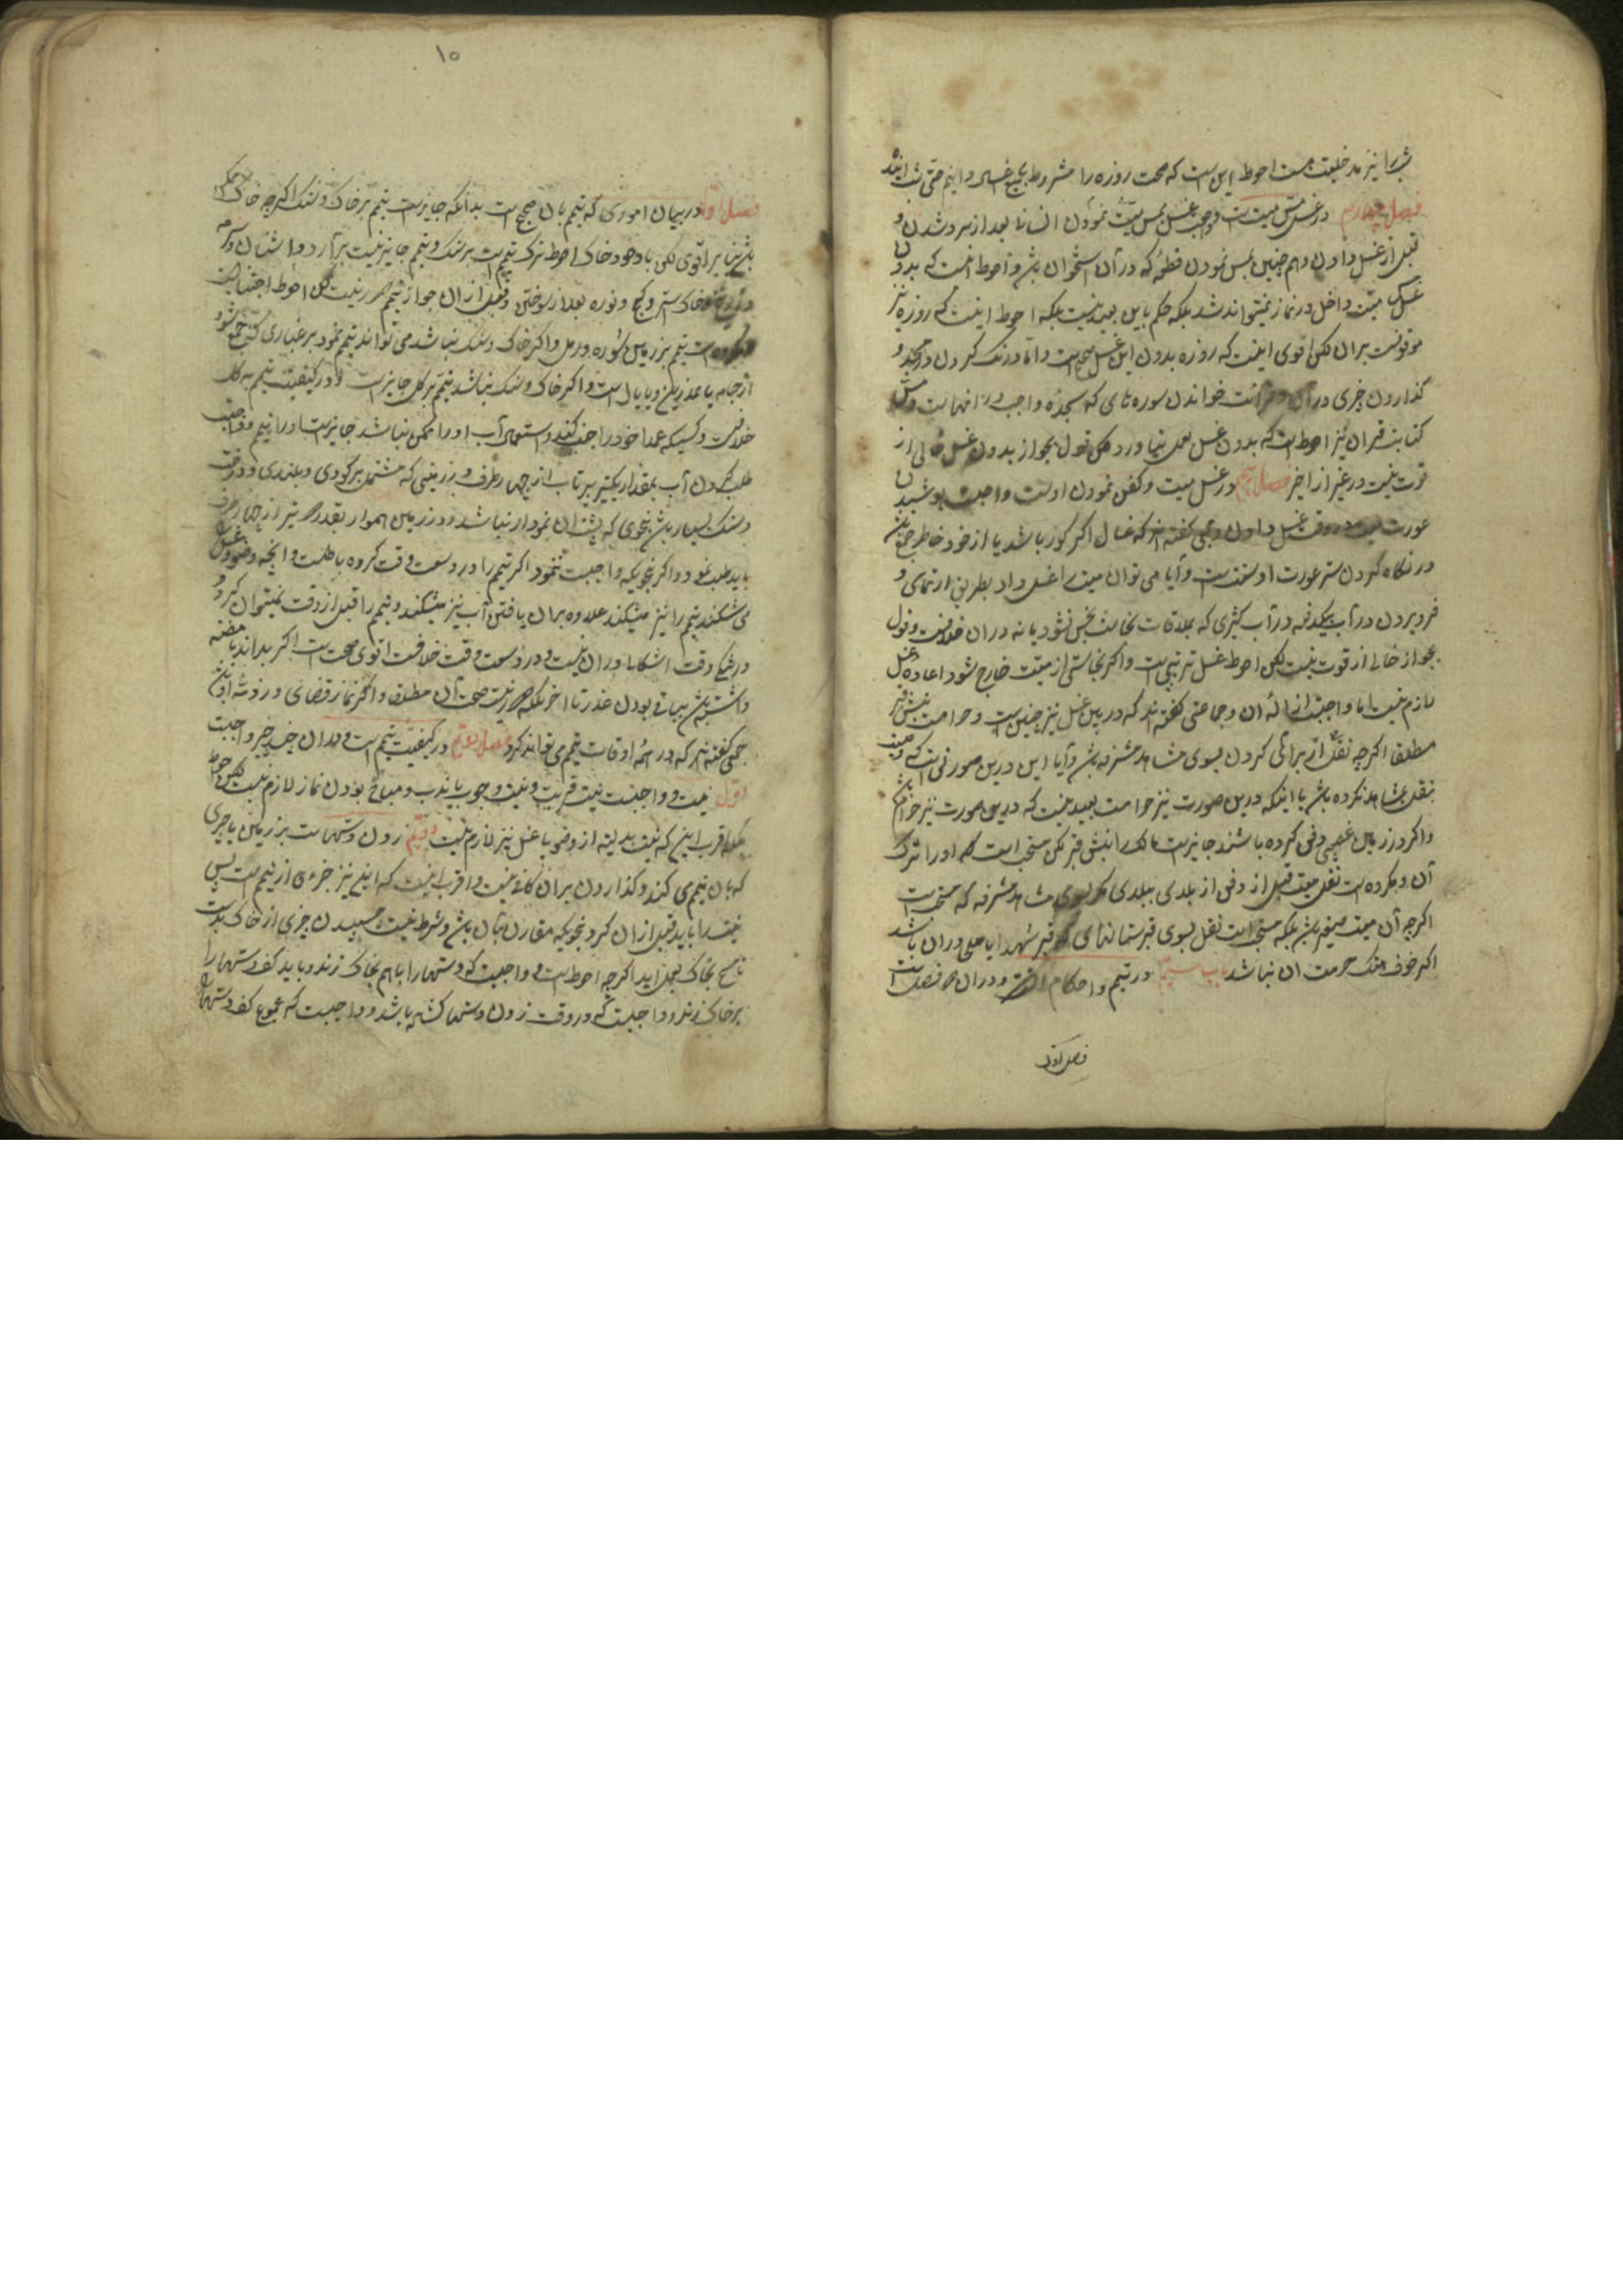 شب را نیز مدخلیت هست احوط این است که صحت روزه را مشروط بجمیع غسلها دانیم حتی شب آینده
فصل چهارم در غسل مس میت است و واجب غسل بمس میت نمودن انسان بعد از سرد شدن و
قبل از غسل دادن و هم چنین بمس نمودن قطعه که در آن استخوان باشد و احوط آنست که بدون
غسل میت داخل در نماز نمیتواند شد بلکه حکم باین بعید نیست بلکه احوط اینست که روزه نیز
موقوفست بران لکن اقوی اینست که روزه بدون این غسل صحیح است و اما درنگ کردن در مسجد و
گذاردن چیزی در آن و قرائت خواندن سوره های که سجده واجب در انهاست و مس
کتابت قران نیز احوط است که بدون غسل بعمل نیاورد لکن قول بجواز بدون غسل خالی از
قوت نیست در غیر از اخیر فصل پنجم در غسل میت و کفن نمودن اوست واجبست پوشیدن
عورت میت در وقت غسل دادن و جمعی گفته اند که غسال اگر کور باشد یا از خود خاطر جمع باشد
در نگاه کردن ستر عورت او سنت است و آیا می توان میت را غسل داد بطریق ارتماسی و
فرو بردن در آب یکدفعه در آب کثیری که بملاقات نجاست نجس نشود یا نه در ان خلافست و قول
بجواز خالی از قوت نیست لکن احوط غسل ترتیبی است و اگر نجاستی از میت خارج شود اعاده غسل
لازم نیست اما واجبست ازاله آن و جماعتی گفته اند که در بین غسل نیز چنین است و حرامست نبش قبر
مطلقا اگرچه نقل از برای کردن بسوی مشاهد مشرفه باشد و آیا این درین صورتی است که وصیت
بنقل بمشاهد نکرده باشد یا اینکه درین صورت نیز حرامست بعید نیست که درین صورت نیز حرام باشد
و اگر در زمین غصبی دفن کرده باشند جایز است مالک را نبش قبر لکن مستحب است که او را ترک
آن و مکروه است نقل میت قبل از دفن از بلدی ببلدی مگر بسوی مشاهد مشرفه که مستحب است
اگرچه آن میت صغیر باشد بلکه مستحب است نقل بسوی قبرستانهای که قبر شهدا یا صلحا در ان باشد
اگر خوف هتک حرمت ان نباشد باب سیم در تیمم و احکام آنست و در ان سه فصل است
فصل اول
۱۰
فصل اول در بیان اموری که تیمم بان صحیح است بدانکه جایز است تیمم بر خاک و سنگ اگرچه خاک
باشد بنا بر اقوی لکن با وجود خاک احوط ترک تیمم است بر سنگ و تیمم جایز نیست بر آرد و اشنان و
خاکستر و گچ و نوره بعد از سوختن و قبل از ان جواز تیمم دور نیست لکن احوط اجتناب است
و مکروه است تیمم بر زمین شوره و رمل و اگر خاک و سنگ نباشد می تواند تیمم نمود بر غباری که جمع شود
از جامه یا نمد زین و یا یال اسب و اگر خاک و سنگ نباشد تیمم بر گل جایز است و در کیفیت تیمم به گل
خلافست و کسیکه عمدا خود را جنب کند و استعمال آب او را ممکن نباشد جایز است او را تیمم و واجبست
طلب کردن آب بمقدار یکتیر پرتاب از چهار طرف در زمینی که مشتمل بر گودی و بلندی و درخت
و سنگ بسیار باشد بنحوی که پشت ان نمودار نباشد و در زمین هموار بقدر دو تیر از چهار طرف
باید طلب نمود و اگر نجویکه واجبست ننمود اگر تیمم را در وسعت وقت کرده باطلست و آنچه وضو و غسل را
می شکند تیمم را نیز میشکند علاوه بران یافتن آب نیز میشکند و تیمم را قبل از وقت نمیتوان کرد و
در تنگی وقت اشکالی در ان نیست و در وسعت وقت خلافست اقوی صحت است اگر بداند یا مظنه
داشته باشد بباقی بودن عذر تا اخر بلکه دور نیست صحت آن مطلقا و اگر نماز قضای در ذمه او باشد
جمعی گفته اند که در همه اوقات تیمم می تواند کرد فصل دویم در کیفیت تیمم است و در ان چند چیز واجبست
اول نیت و واجبست نیت قربت و نیت وجوب یا ندب و مباح بودن نماز لازم نیست لکن احوط
بلکه اقرب اینست که نیت بدلیت از وضو یا غسل نیز لازم نیست دویم زدن دستهاست بر زمین یا چیزی
که بان تیمم می کند و گذاردن بران کافی نیست و اقرب اینست که اینها نیز جزءی از تیمم است پس
نیت را باید قبل ازان کرد بنحویکه مقارن بان باشد و شرط نیست چسبیدن چیزی از خاک بدست
تا مسح بخاک بعمل اید اگرچه احوط است و واجبست که دستها را باهم بخاک زند و باید کف دستها را
بر خاک زند و واجبست که در وقت زدن دستها گشاده باشد و واجبست که مجموع کف دستها